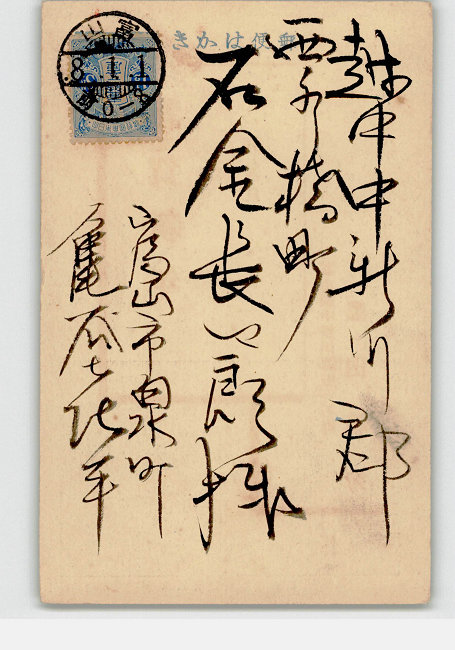 郵便はかき
越中中新川郡
西水橋町
石金長四郎様
富山市泉町
亀谷
富山
8.1.1